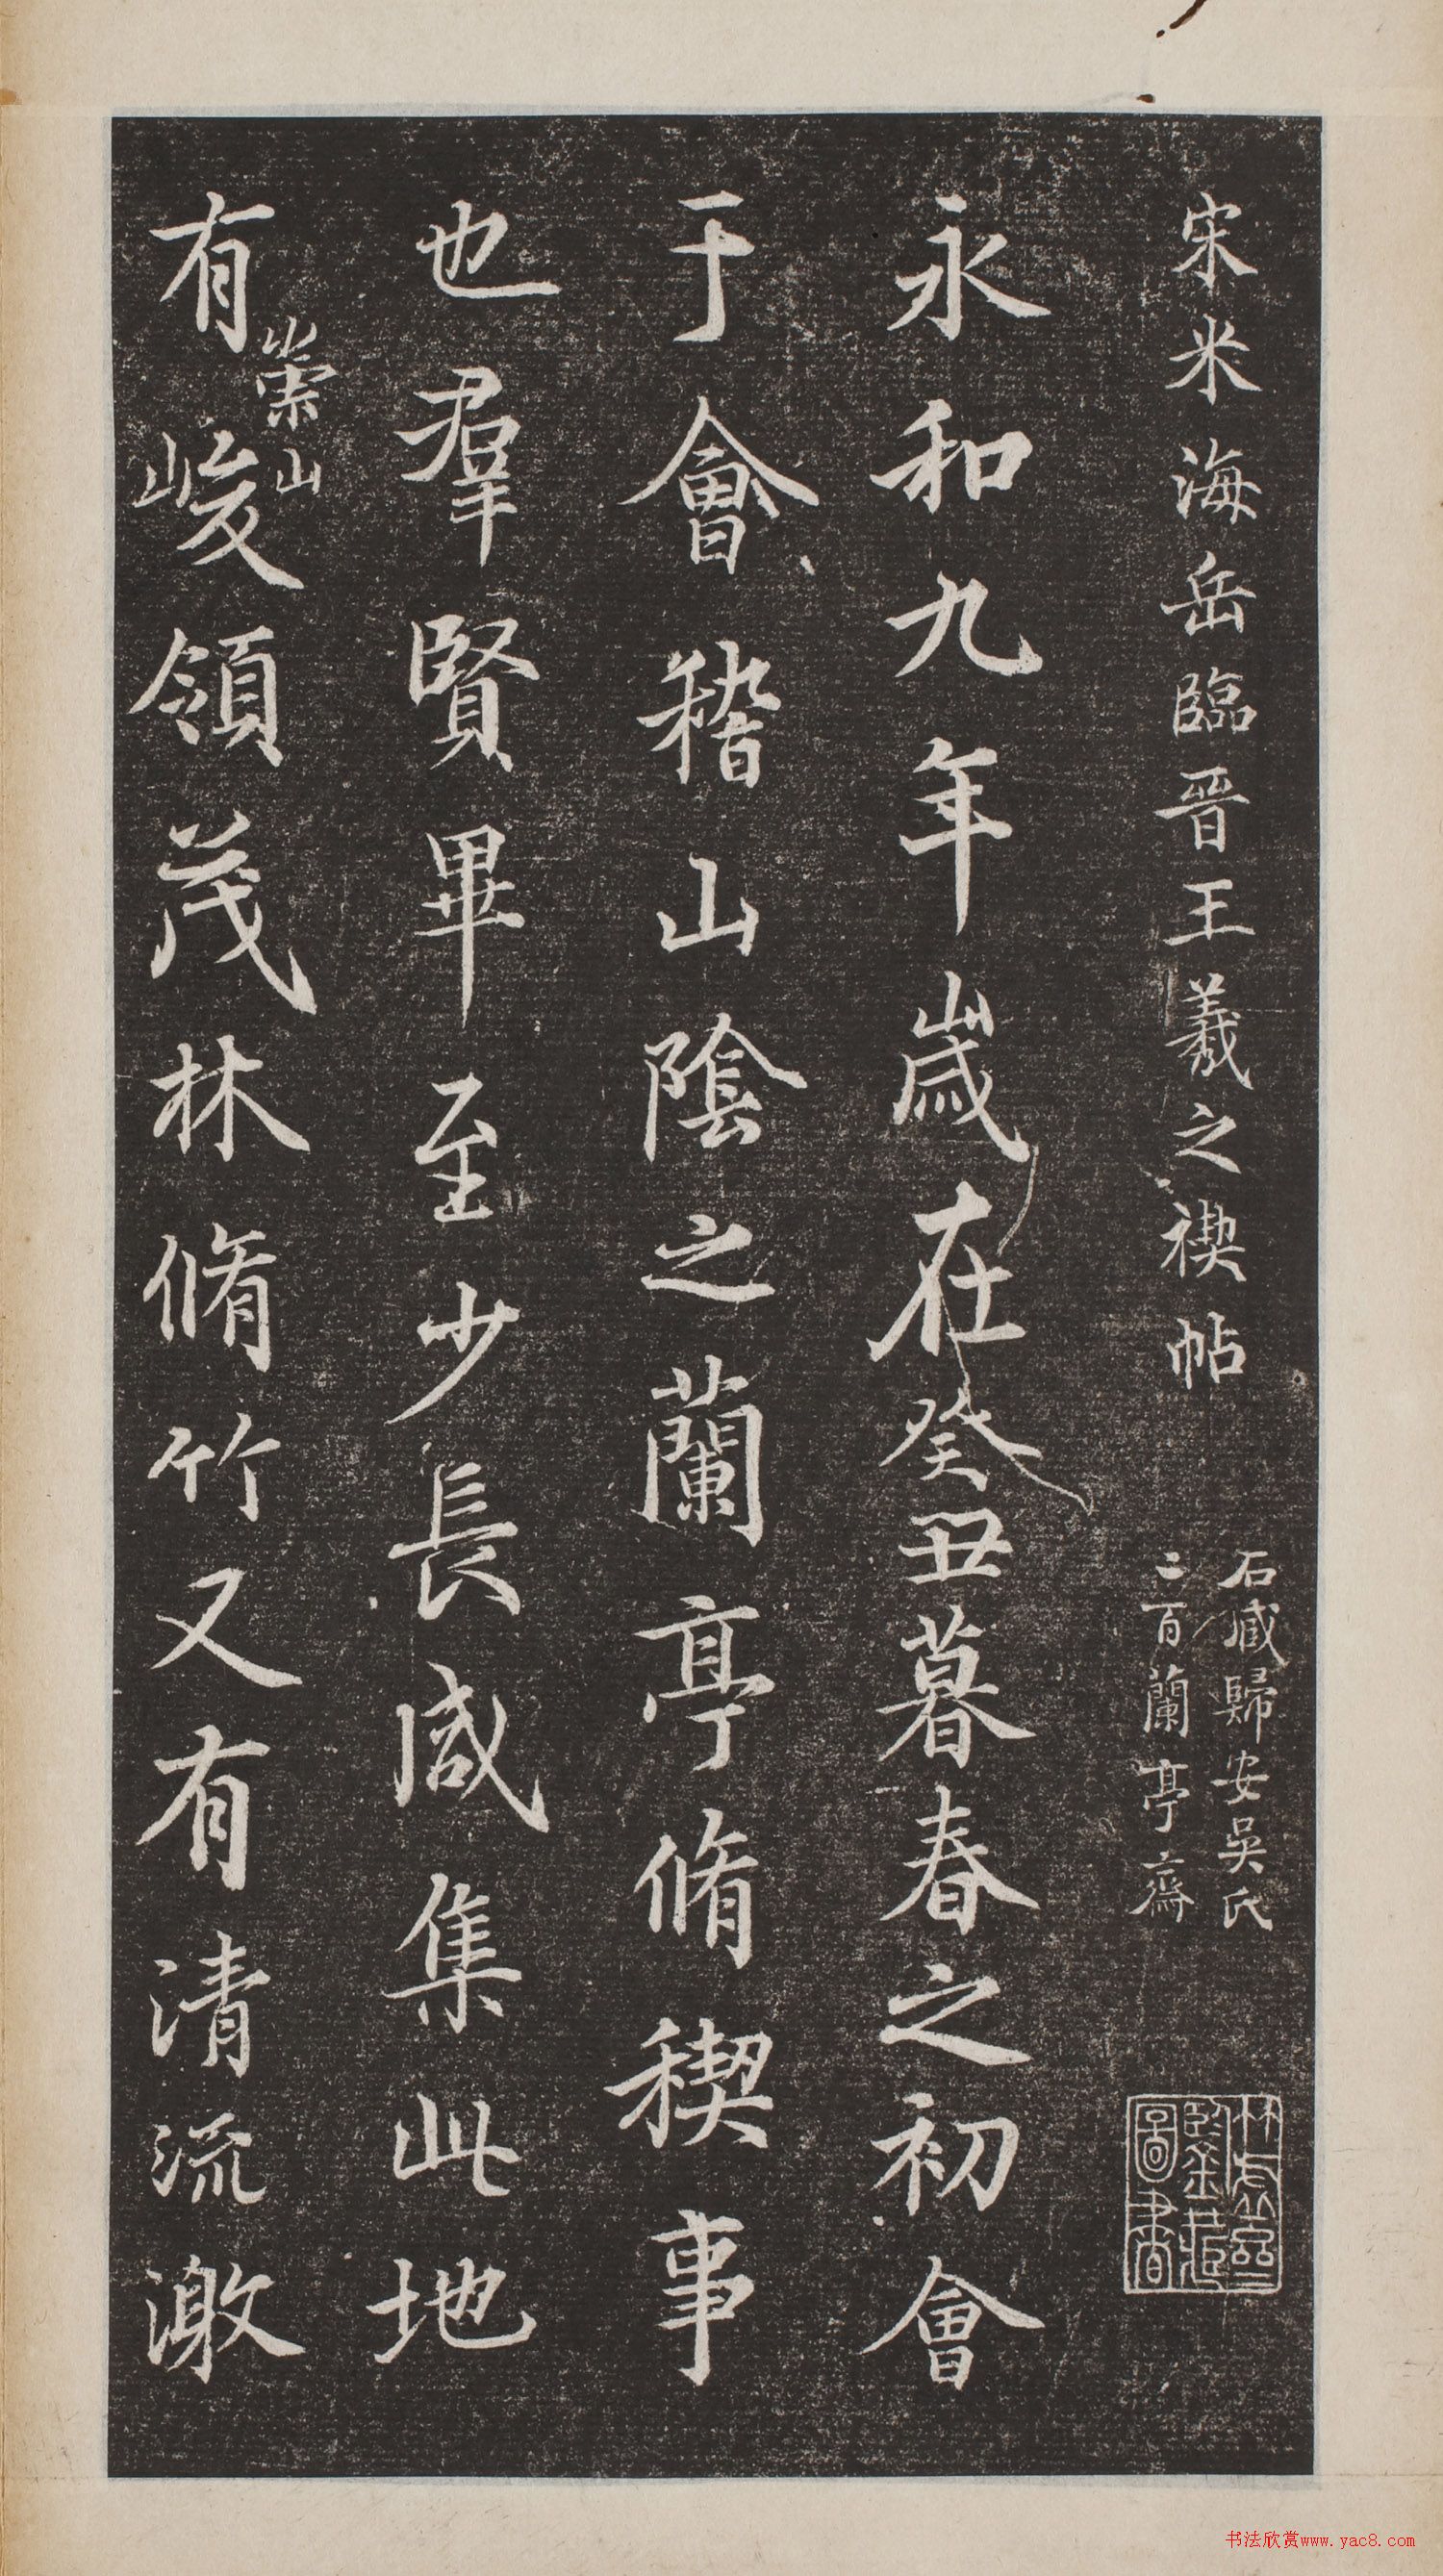 宋米海岳臨晉王羲之禊帖
石藏歸安吳氏
二百蘭亭齋
永和九年歲在癸丑暮春之初會
于會稽山陰之蘭亭脩稧事
也羣賢畢至少長咸集此地
有峻領茂林脩竹又有清流激
崇山
书法欣赏www.yac8.com